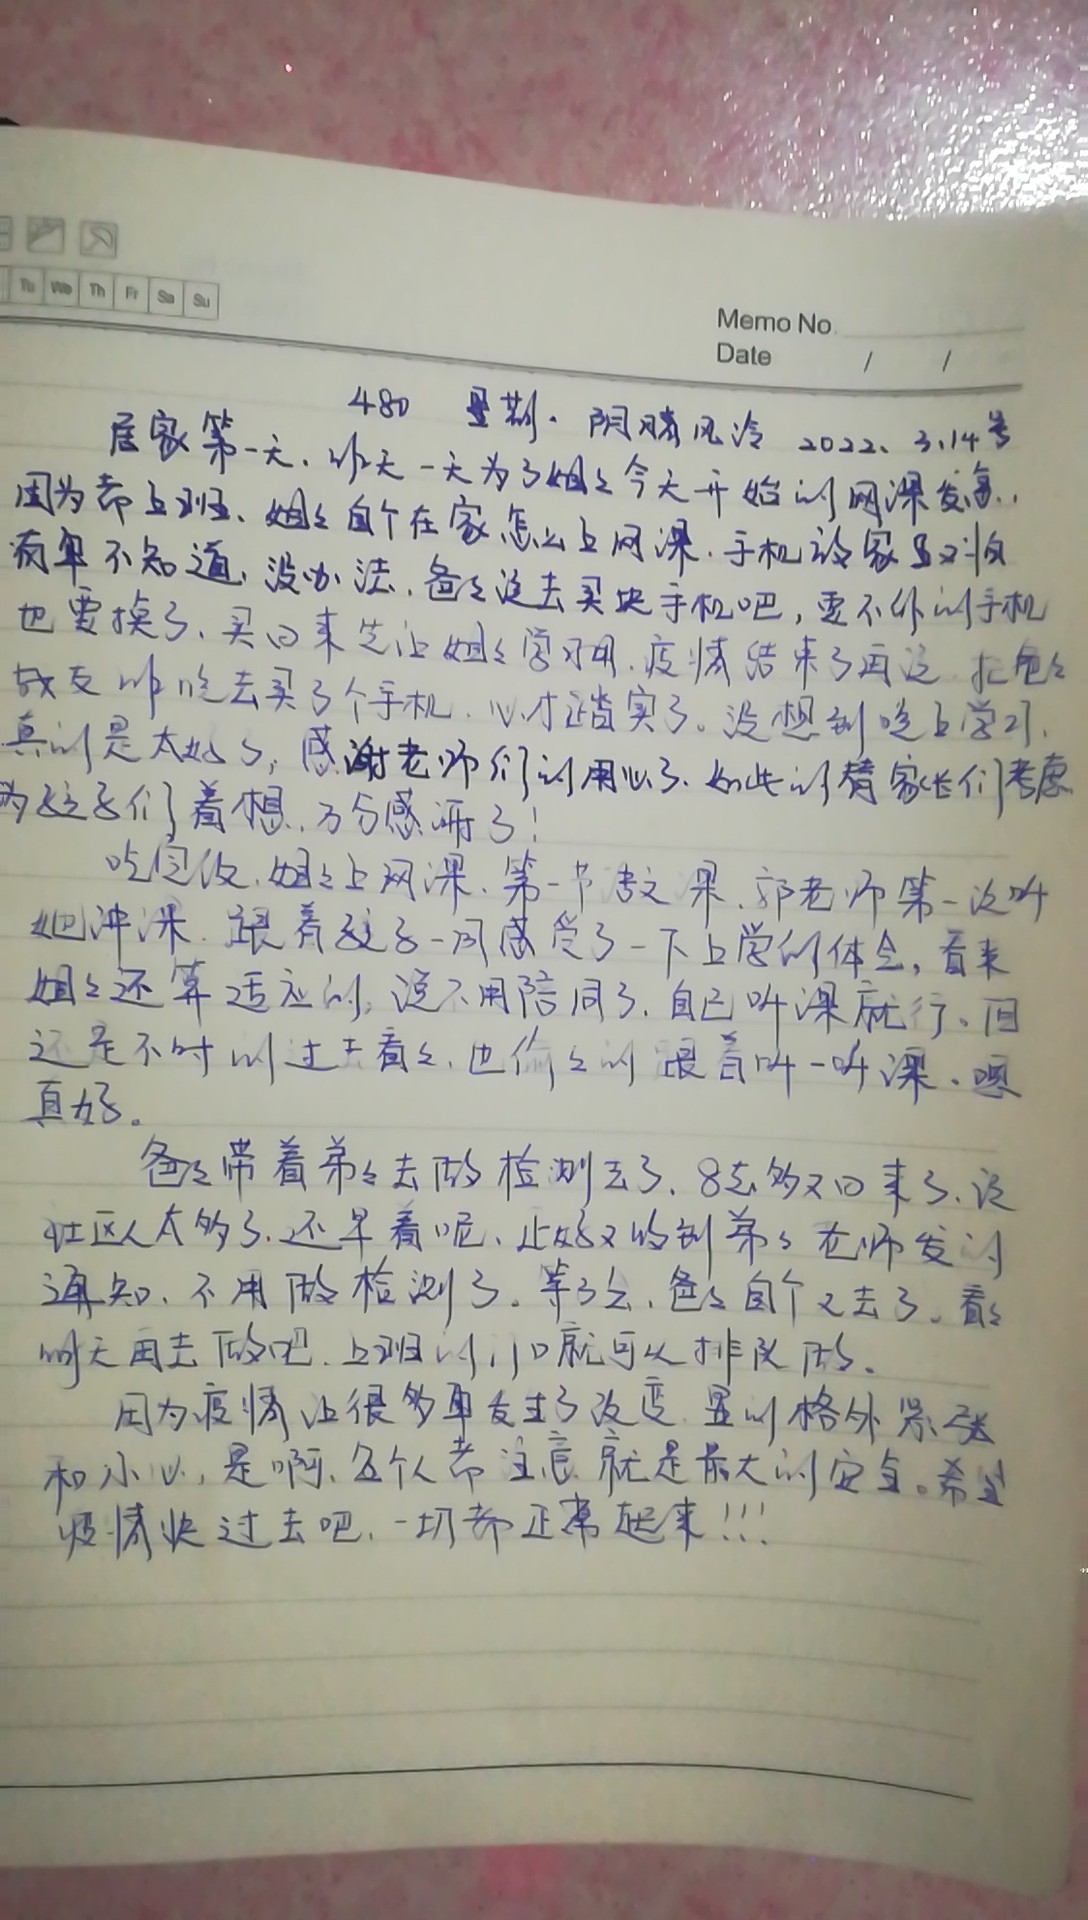 Tu We Th Fr Sa Su
Memo No.
Date / /
480 星期一 阴晴风冷 2022.3.14号
居家第一天、昨天一天为了姐姐今天开始的网课发急,
因为都上班、姐姐自个在家怎么上网课.手机
不知道,没办法,爸爸说去买块手机吧,要不你的手机
也要换了、买回来先让姐姐学习用.疫情结束了再说
昨晚去买了个手机.心才踏实了。没想到晚上学习,
真的是太好了,感谢老师们的用心了.如此的替家长们考虑
为孩子们着想.万分感谢了!
吃完饭.姐姐上网课、第一节语文课.郭老师第一次听
她讲课.跟着孩子一同感受了一下上学的体会,看来
姐姐还算适应的,说不用陪同了.自己听课就行、但
还是不时的过去看看、也偷偷的跟着听一听课、嗯
真好。
爸爸带着弟弟去做检测去了、8点多又回来了、说
社区人太多了.还早着呢、正好又收到弟弟老师发的
通知、不用做检测了。等了会、爸爸自个又去了。看看
明天再去做吧.上班的门口就可以排队做。
因为疫情让很多事发生了改变 显的格外紧张
和小心,是啊、每个人都注意就是最大的安全。希望
疫情快过去吧、一切都正常起来!!!